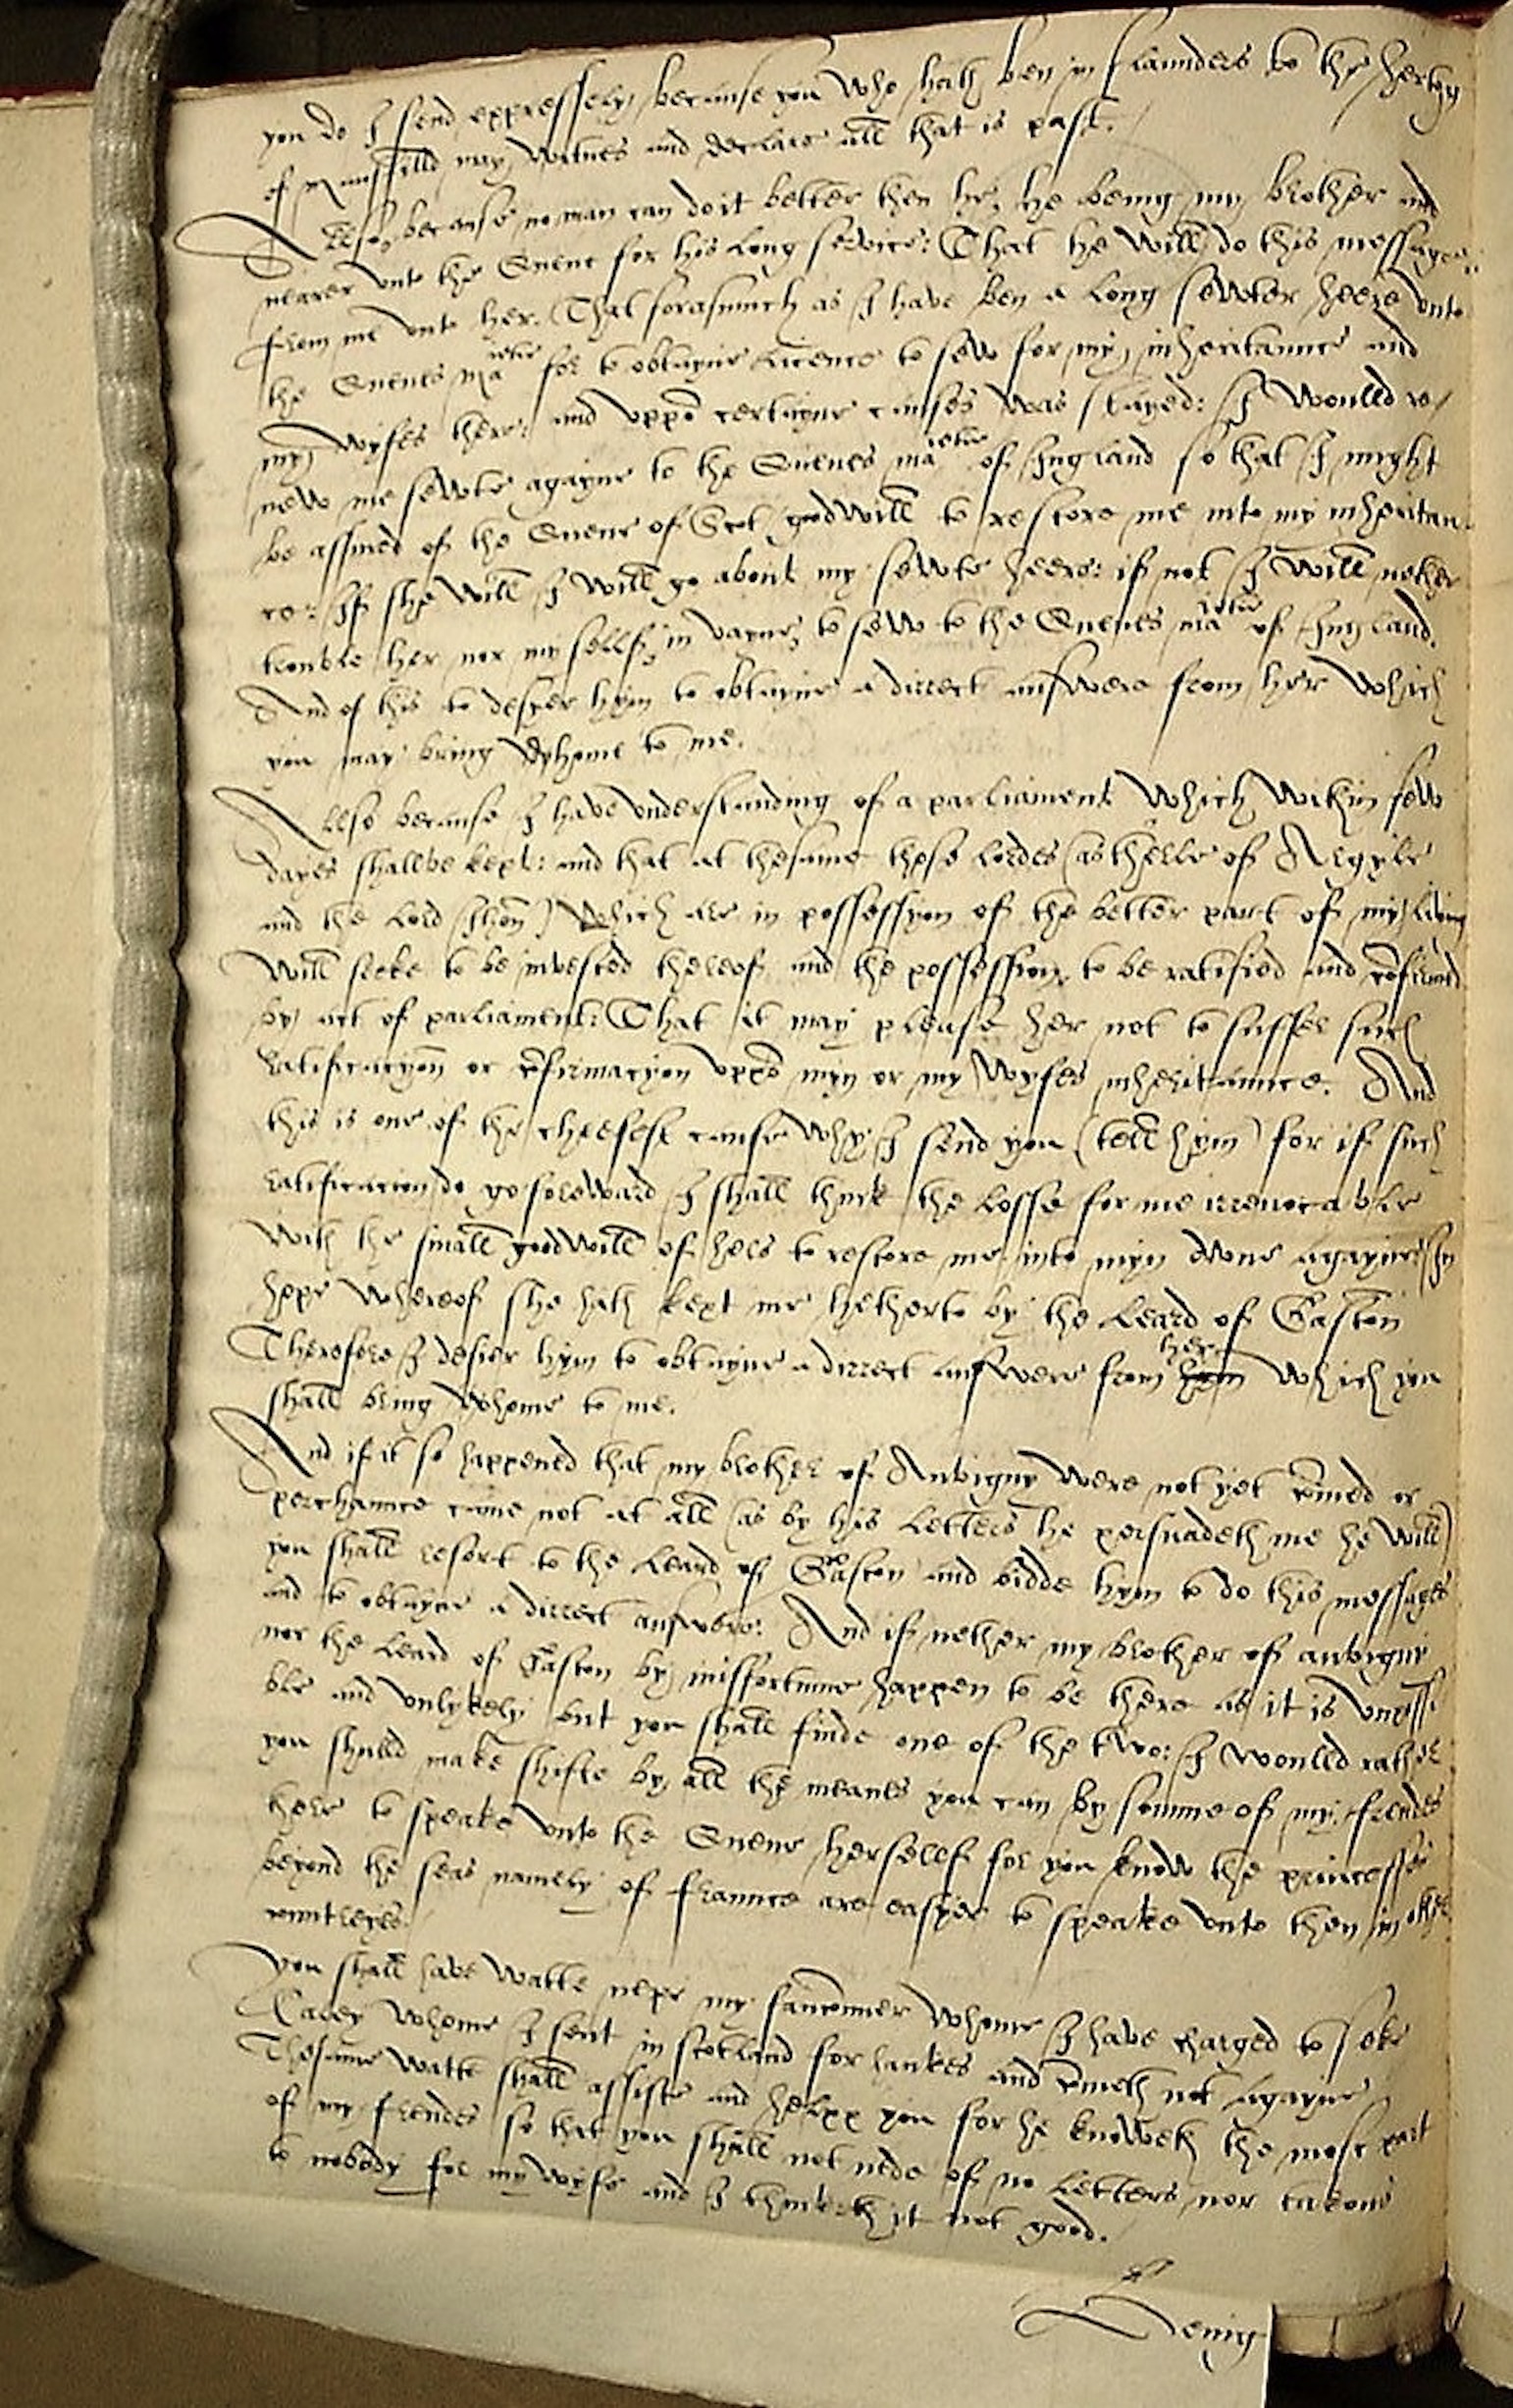 you do I send expressely, because you who hath ben in Flaunders to the
of Mansfilld may witnes and declare all that is past.
Allso, because no man can do it better then he, he being my brother and
nearer unto the Quene for his long service: That he will do this message
from me unto her. That forasmuch as I have ben a long sewter heere unto
the Quenes matie for to obtayne licence to sew for my inheritaunce and
my wyfes there: and uppō certayne causes was stayed: I woulld re/
new me sewte agayne to the Quenes matie of Ingland so that I might
be assured of the Quene of Scot goodwill to restore me into my inheritan
ce: If she will I will go about my sewte heere: if not I will nether
trouble her nor my sellf, in vayne, to sew to the Quenes matie of Ingland.
And of this to desyer hym to obtayne a dirrect answere from her which
you may bring home to me.
Allso because I have understanding of a parliament which within few
dayes shallbe kept: and that at thesame those lordes (as therle of Argyle
and the lord Jhon) which are in possessyon of the better part of my living
will seeke to be invested thereof and the possession to be ratified and cōfirmed
by act of parliament: That it may please her not to suffer such
ratificacyon or cōfirmacyon uppō myn or my wyfes inheritaunce. And
this is one of the cheefest cause why I send you (tell hym) for if such
ratification do go foreward I shall think the losse for me irrevocable
with the small goodwill of hers to restore me into myn owne agayne, In
hope whereof she hath kept me hetherto by the Leard of Gaston
Therefore I desier hym to obtayne a dirrect answere from hym her which you
shall bring home to me.
And if it so happened that my brother of Aubigny were not yet cōmed or
perchaunce come not at all (as by his letters he persuadeth me he will)
you shall resort to the Leard of Gaston and bidde hym to do this messages
and to obtayne a dirrect answere: And if nether my brother of aubigny
nor the Leard of Gaston by misfortune happen to be there as it is unpossi
ble and unlykely but you shall finde one of the two: I woulld rather
you shulld make shifte by all the meanes you can by somme of my frendes
there to speake unto the Quene hersellf for you know the princesses
beyond the seas namely of fraunce are easyer to speake unto then in other
countreyes.
You shall have watte nepe my fauconner whome I have charged to seke
Carey whome I sent in scotland for haukes and cōmeth not agayne
Thesame watte shall assiste and helpe you for he knoweth the most part
of my frendes so that you shall not nede of no letters nor takons
to nobody for my wyfe and I thinketh it not good.